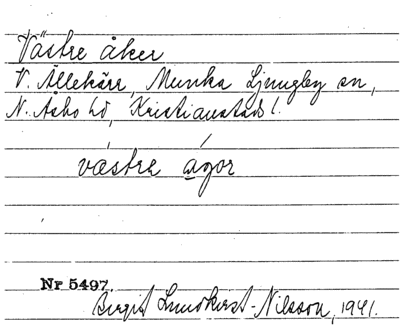 Västre åker
V. Ällekärr, Munka Ljungby sn,
N. Åsbo hd, Kristianstads l.
västre ågor
Nr 5497.
Birgit Lundkvist-Nilsson, 1941.